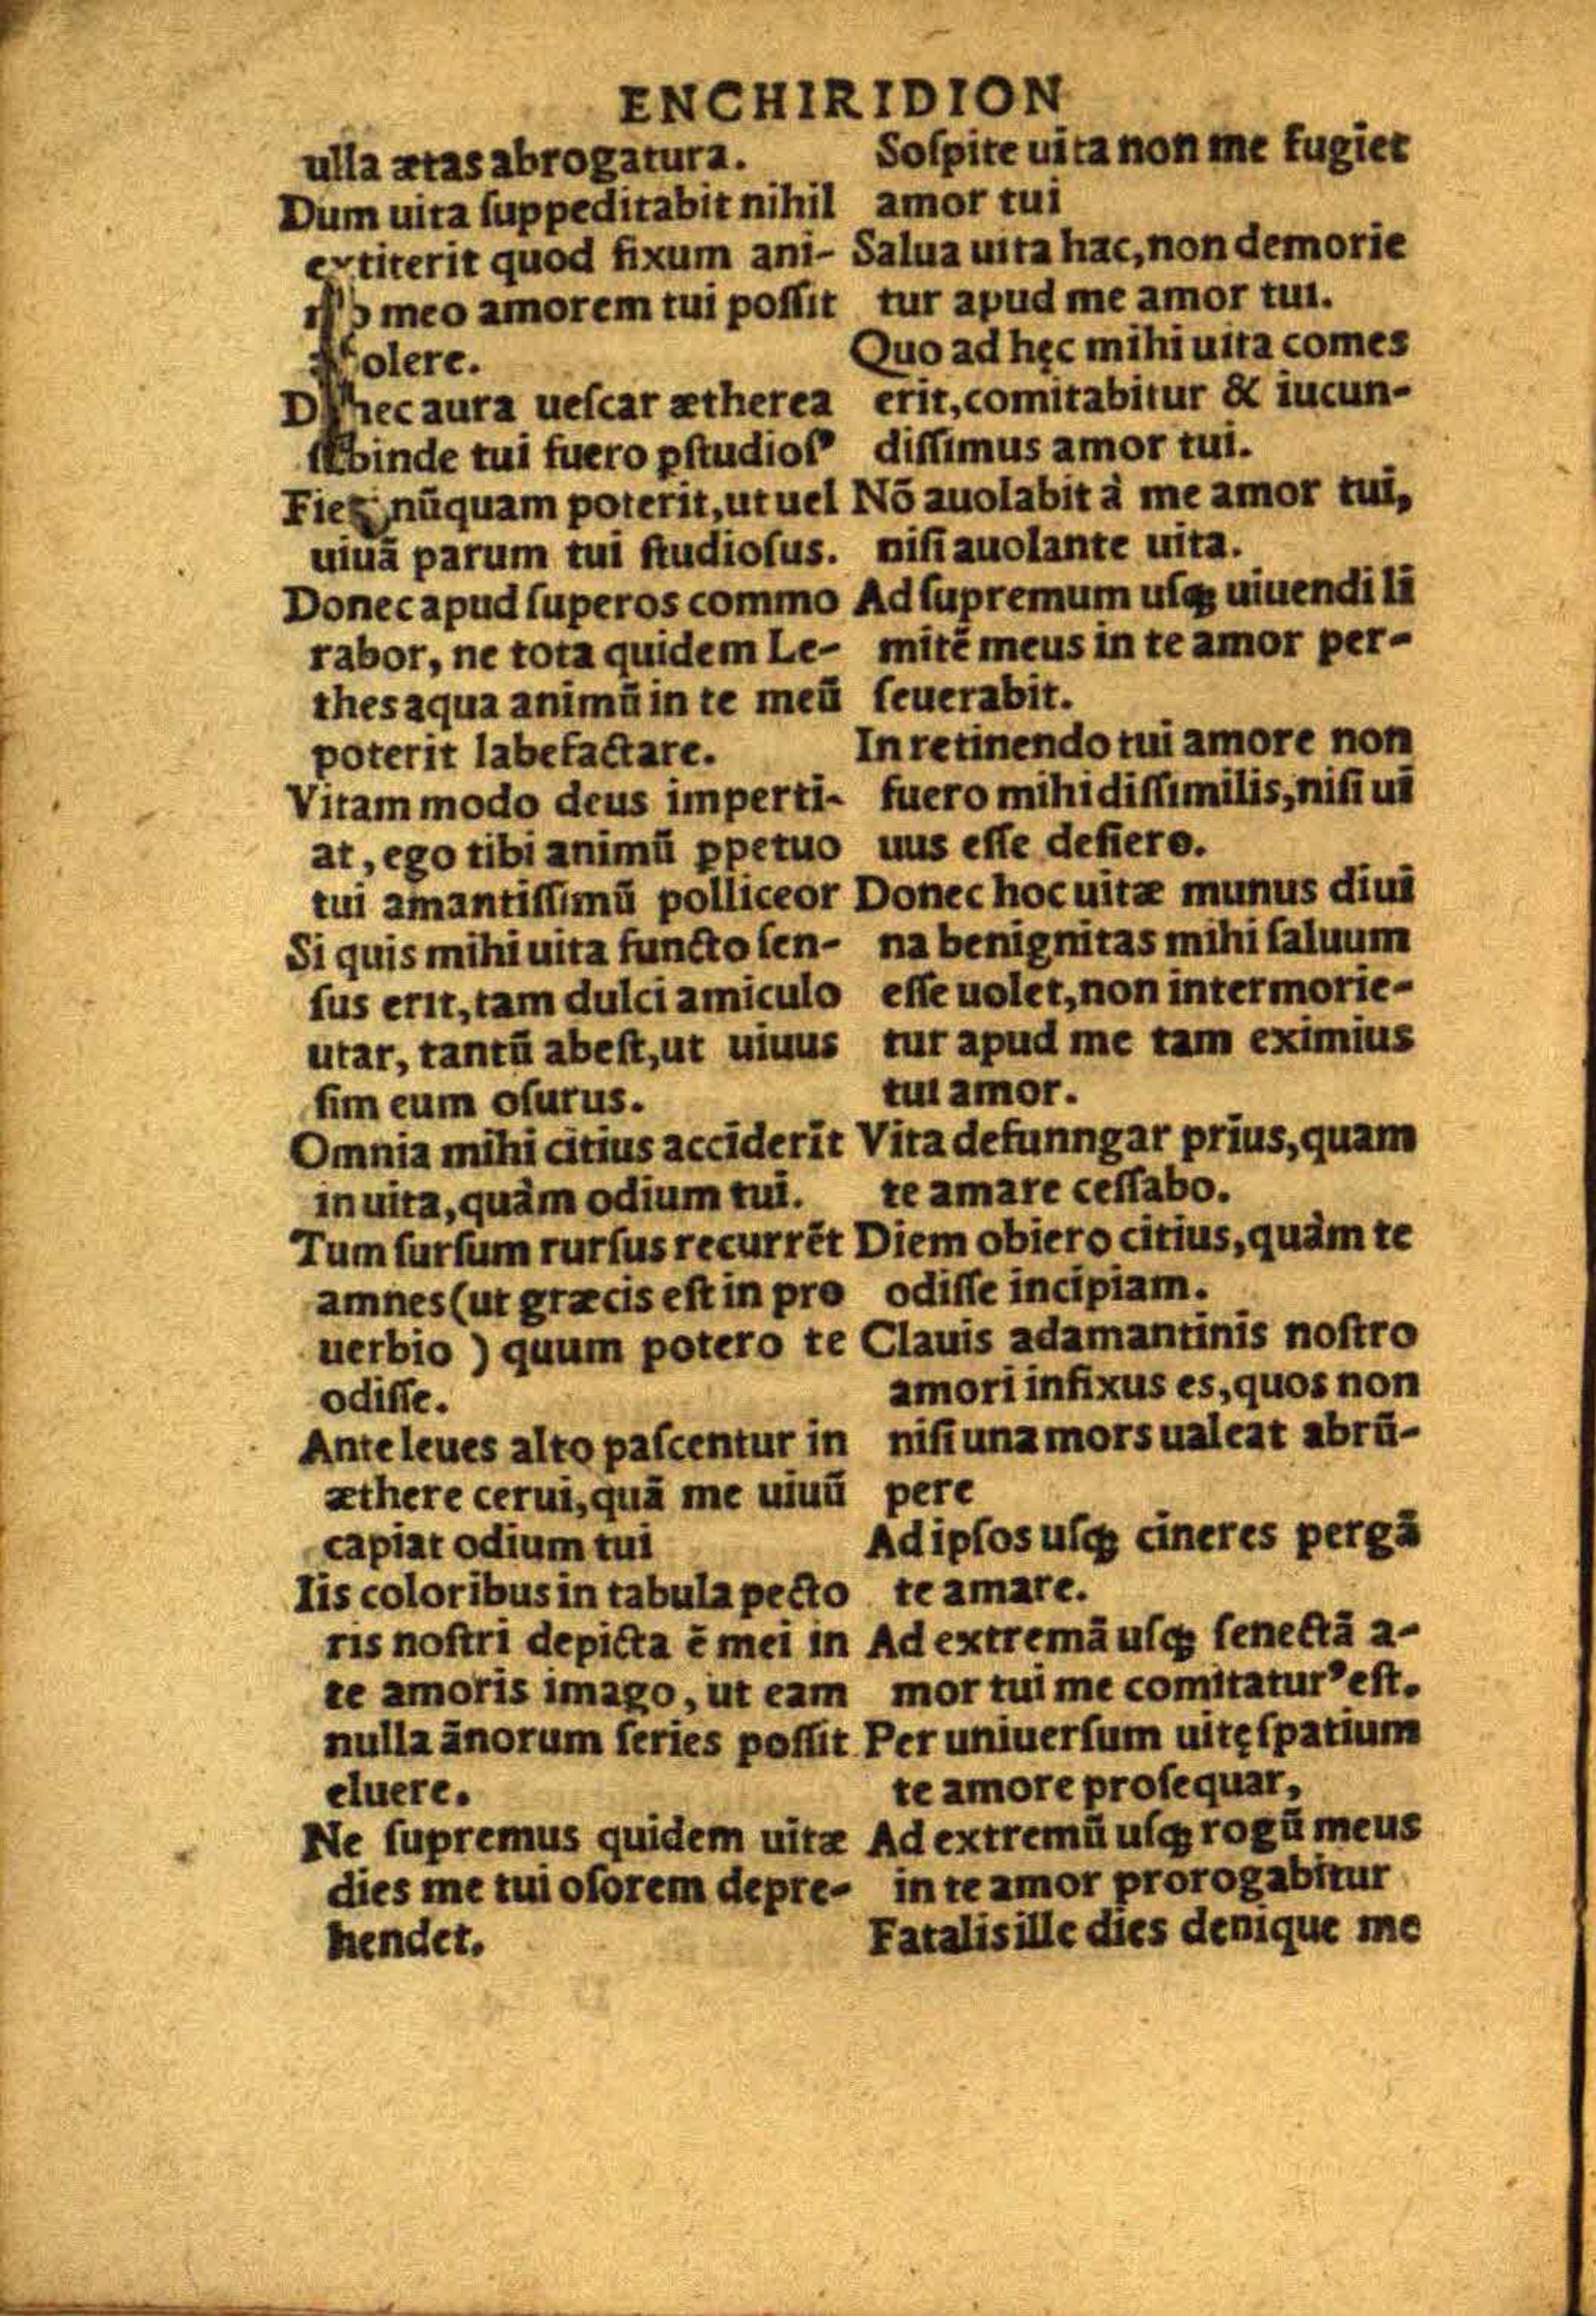 ENCHIRIDION
ulla ætas abrogatura.
Dum uita ſuppeditabit nihil
extiterit quod fixum ani-
meo amorem tui poſſit
olere.
aura ueſcar ætherea
tui fuero ꝑſtudioſꝰ
nūquam poterit, ut uel
uiuā parum tui ſtudioſus.
Donec apud ſuperos commo
rabor, ne tota quidem Le-
thes aqua animū in te meū
poterit labefactare.
Vitam modo deus imperti-
at, ego tibi animū ꝑpetuo
tui amantiſſimū polliceor
Si quis mihi uita functo ſen-
ſus erit, tam dulci amiculo
utar, tantū abeſt, ut uiuus
ſim eum oſurus.
Omnia mihi citius acciderīt
in uita, quàm odium tui.
Tum ſurſum rurſus recurrēt
amnes (ut græcis eſt in pro
uerbio ) quum potero te
odiſſe.
Ante leues alto paſcentur in
æthere cerui, quā me uiuū
capiat odium tui
Iis coloribus in tabula pecto
ris noſtri depicta ē mei in
te amoris imago, ut eam
nulla ānorum ſeries poſſit
eluere.
Ne ſupremus quidem uitæ
dies me tui oſorem depre-
hendet.
Soſpite uita non me fugiet
amor tui
Salua uita hac, non demorie
tur apud me amor tui.
Quo ad hęc mihi uita comes
erit, comitabitur & iucun-
diſſimus amor tui.
Nō auolabit à me amor tui,
niſi auolante uita.
Ad ſupremum uſqꝫ uiuendi li
mitē meus in te amor per-
ſeuerabit.
In retinendo tui amore non
fuero mihi diſſimilis, niſi ui
uus eſſe deſiero.
Donec hoc uitæ munus diui
na benignitas mihi ſaluum
eſſe uolet, non intermorie-
tur apud me tam eximius
tui amor.
Vita defunngar prius, quam
te amare ceſſabo.
Diem obiero citius, quàm te
odiſſe incipiam.
Clauis adamantinis noſtro
amori infixus es, quos non
niſi una mors ualeat abrū-
pere
Ad ipſos uſqꝫ cineres pergā
te amare.
Ad extremā uſqꝫ ſenectā a-
mor tui me comitaturꝰ eſt.
Per uniuerſum uitę ſpatium
te amore proſequar,
Ad extremū uſqꝫ rogū meus
in te amor prorogabitur
Fatalis ille dies denique me